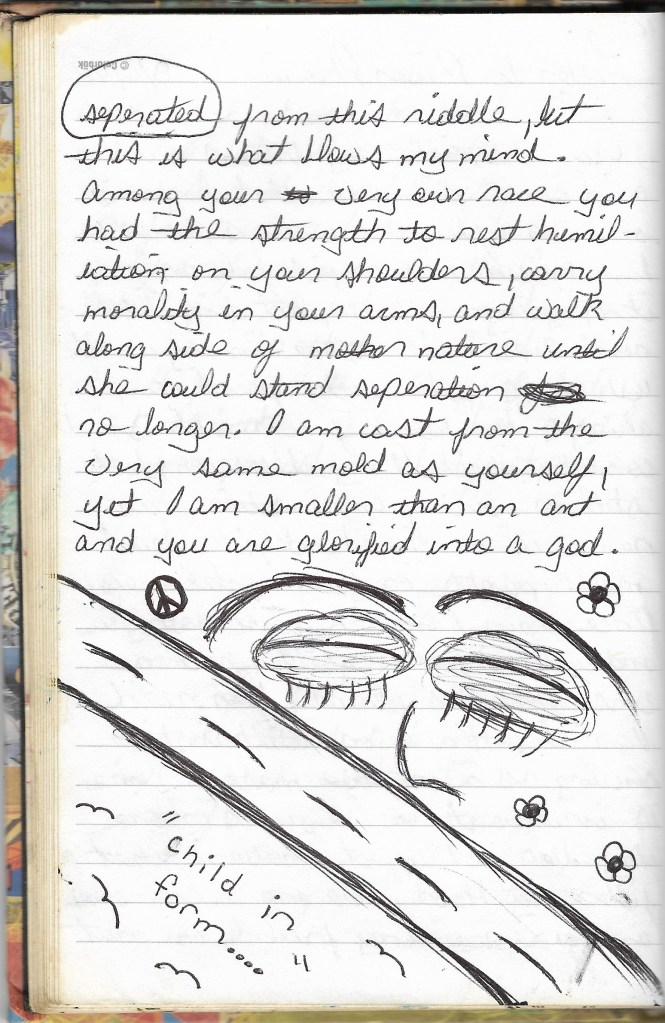 © Colorbök
seperated from this riddle, but
this is what blows my mind.
Among your very own race you
had the strength to rest humil-
iation on your shoulders, carry
morality in your arms, and walk
along side of mother nature until
she could stand seperation
no longer. I am cast from the
very same mold as yourself,
yet I am smaller than an ant
and you are glorified into a god.
"child in
form...."